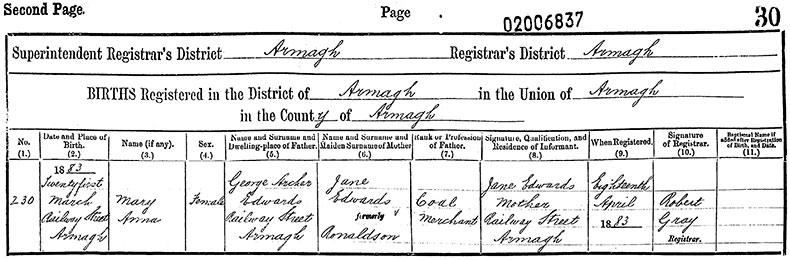 Second Page.
Page
02006837
30
Superintendent Registrar's District Armagh Registrar's District Armagh
BIRTHS Registered in the District of Armagh in the Union of Armagh
in the County of Armagh
No.
(1.)
Date and Place of
Birth.
(2.)
Name (if any).
(3.)
Sex.
(4.)
Name and Surname and
Dwelling-place of Father.
(5.)
Name and Surname and
Maiden Surname of Mother
(6.)
Rank or Profession
of Father.
(7.)
Signature, Qualification, and
Residence of Informant.
(8.)
When Registered.
(9.)
Signature
of Registrar.
(10.)
Baptismal Name if
added after Registration
of Birth, and Date.
(11.)
230
1883
Twentyfirst
March
Railway Street
Armagh
Mary
Anna
Female
George Archer
Edwards
Railway Street
Armagh
Jane
Edwards
formerly
Ronaldson
Coal
Merchant
Jane Edwards
Mother
Railway Street
Armagh
Eighteenth
April
1883
Robert
Gray
Registrar.